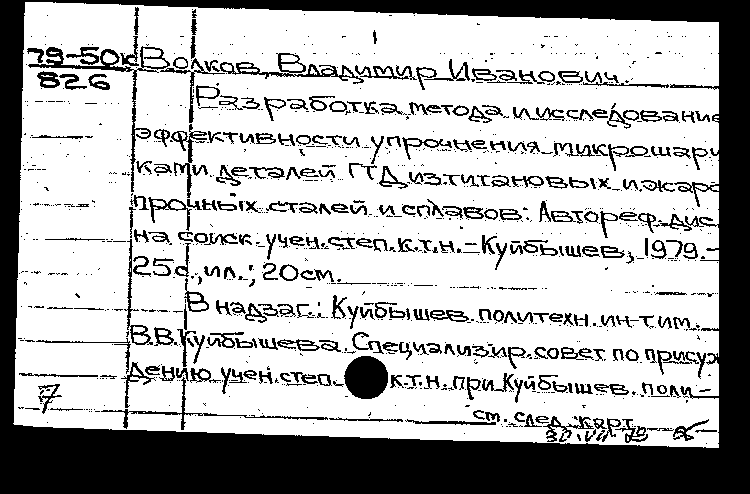 79-50к Волков, Владимир Иванович.
826
Разработка метода и исследование
эффективности упрочнения микрошари
ками деталей ГТД из титановых и жаро
прочных сталей и сплавов: Автореф. дис.
на соиск. учен. степ. к.т.н. - Куйбышев, 1979. -
25с., ил.; 20см.
В надзаг.: Куйбышев. политехн. ин-т им.
В.В. Куйбышева. Специализир. совет по присуж
дению учен. степ. к.т.н. при Куйбышев. поли-
7 см. след. карт.